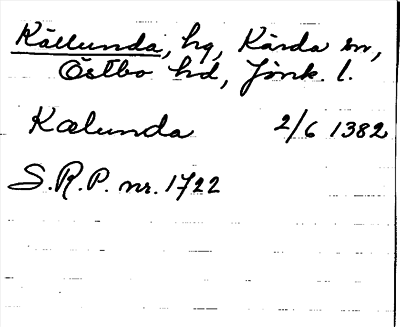 Källunda, hg, Kärda sn,
Östbo hd, Jönk. l.
Kælunda 2/6 1382
S.R.P. nr. 1722